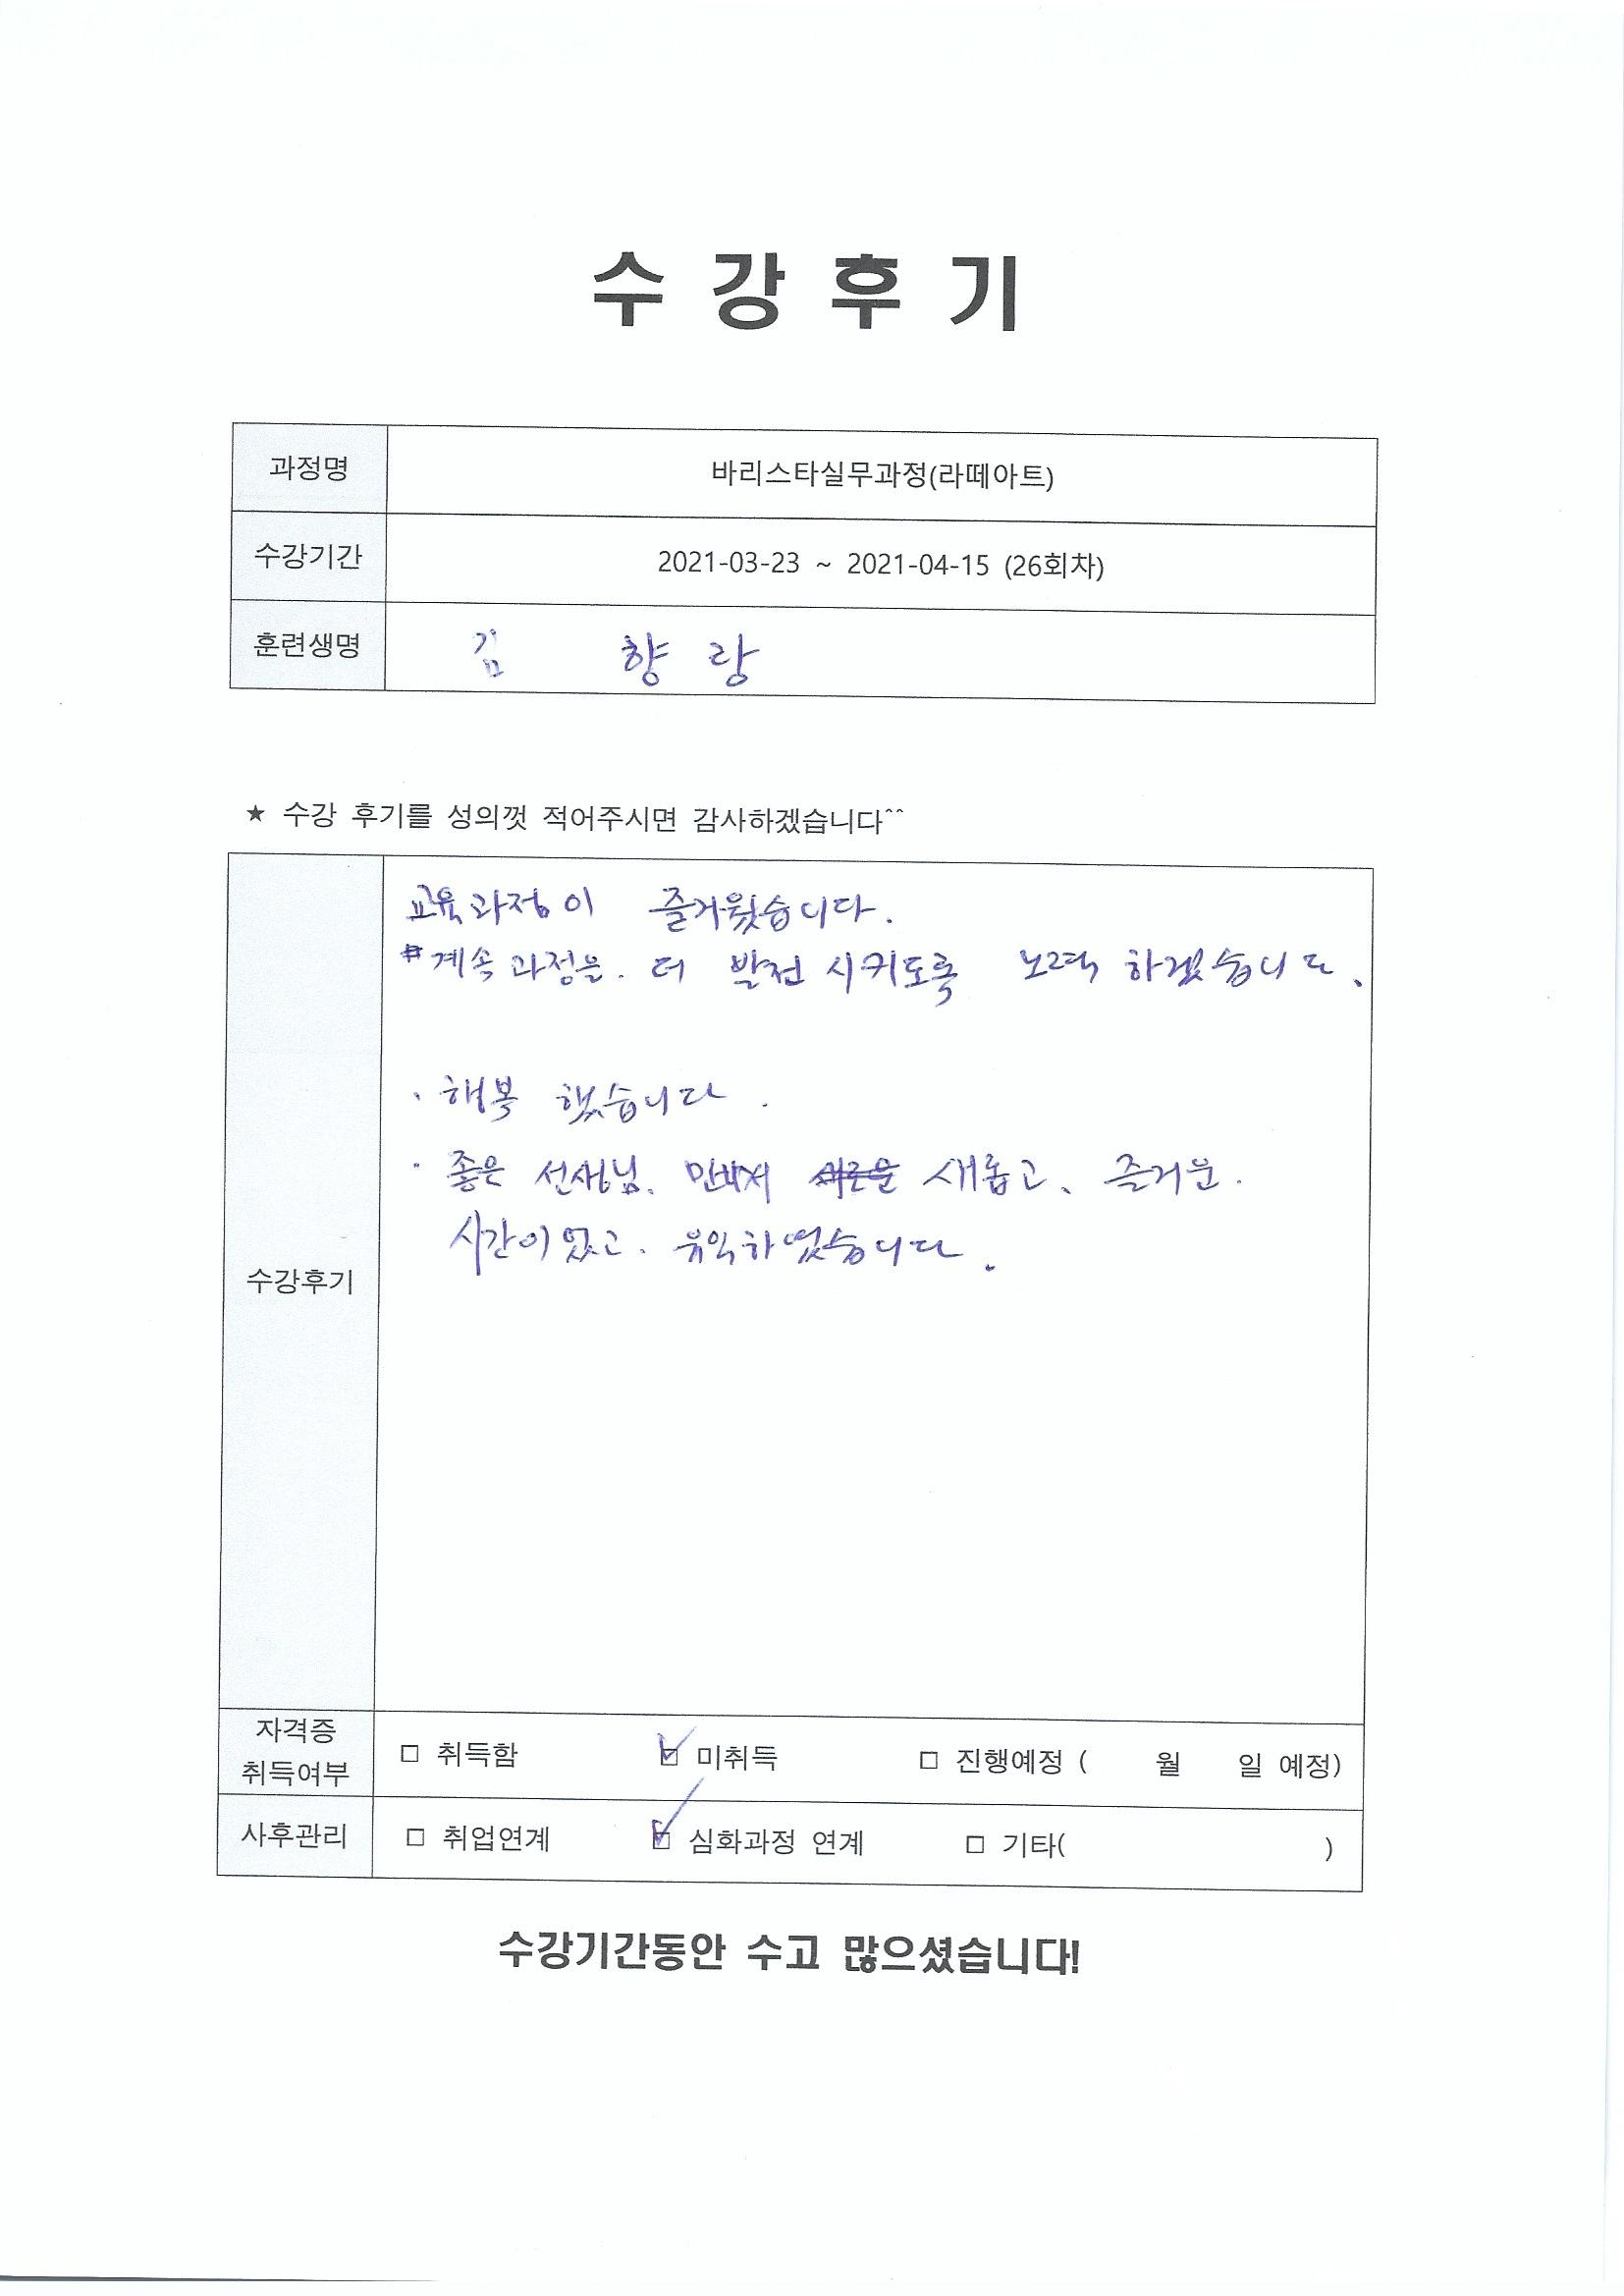 수 강 후 기
과정명 바리스타실무과정(라떼아트)
수강기간 2021-03-23 ~ 2021-04-15 (26회차)
훈련생명 김 향 랑
★ 수강 후기를 성의껏 적어주시면 감사하겠습니다^^
교육과정이 즐거웠습니다.
계속 과정을. 더 발전 시키도록 노력 하겠습니다.
· 행복 했습니다.
· 좋은 선생님. 새롭고、즐거운.
시간이었고. 유익하였습니다.
수강후기
자격증
취득여부
□ 취득함 ☑ 미취득 □ 진행예정 ( 월 일 예정)
사후관리 □ 취업연계 ☑ 심화과정 연계 □ 기타( )
수강기간동안 수고 많으셨습니다!